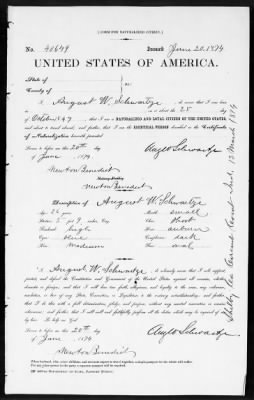 [FORM FOR NATURALIZED CITIZEN.]
No. 40649 Issued June 20, 1874
UNITED STATES OF AMERICA.
State of
County of
I, August W. Schwartze, do swear that I was born
in on or about the 28 day
of October 1847; that I am a NATURALIZED AND LOYAL CITIZEN OF THE UNITED STATES,
and about to travel abroad; and further that I am the IDENTICAL PERSON described in the Certificate
of Naturalization herewith presented.
Sworn to before me this 20th day
of June, 1874
Augt Schwartze
Newton Benedict
Notary Public
Newton Benedict
Description of August W. Schwartze
Age: 26 years Mouth: small
Stature: 5 feet 9 inches, Eng. Chin: short
Forehead: high Hair: auburn
Eyes: blue Complexion: dark
Nose: medium Face: oval
I, August W. Schwartze, do solemnly swear that I will support,
protect, and defend the Constitution and Government of the United States against all enemies, whether
domestic or foreign; and that I will bear true faith, allegiance, and loyalty to the same, any ordinance,
resolution, or law of any State, Convention, or Legislature to the contrary notwithstanding; and further
that I do this with a full determination, pledge, and purpose, without any mental reservation or evasion
whatsoever; and further that I will well and faithfully perform all the duties which may be required of me
by law: So help me God.
Sworn to before me this 20th day
of June, 1874
Augt Schwartze
Newton Benedict
Shelby Co. Circuit Court 13 March 1874